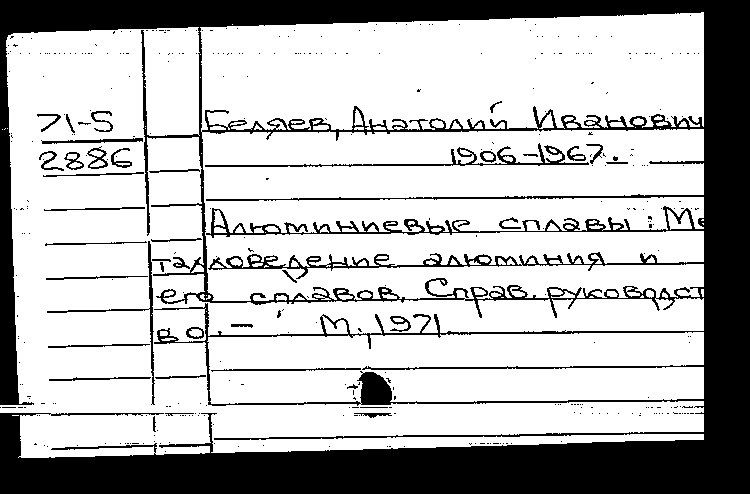 71-5 Беляев, Анатолий Иванович
2886 1906-1967.
Алюминиевые сплавы : Ме
талловедение алюминия и
его сплавов. Справ. руководст
во. - М., 1971.